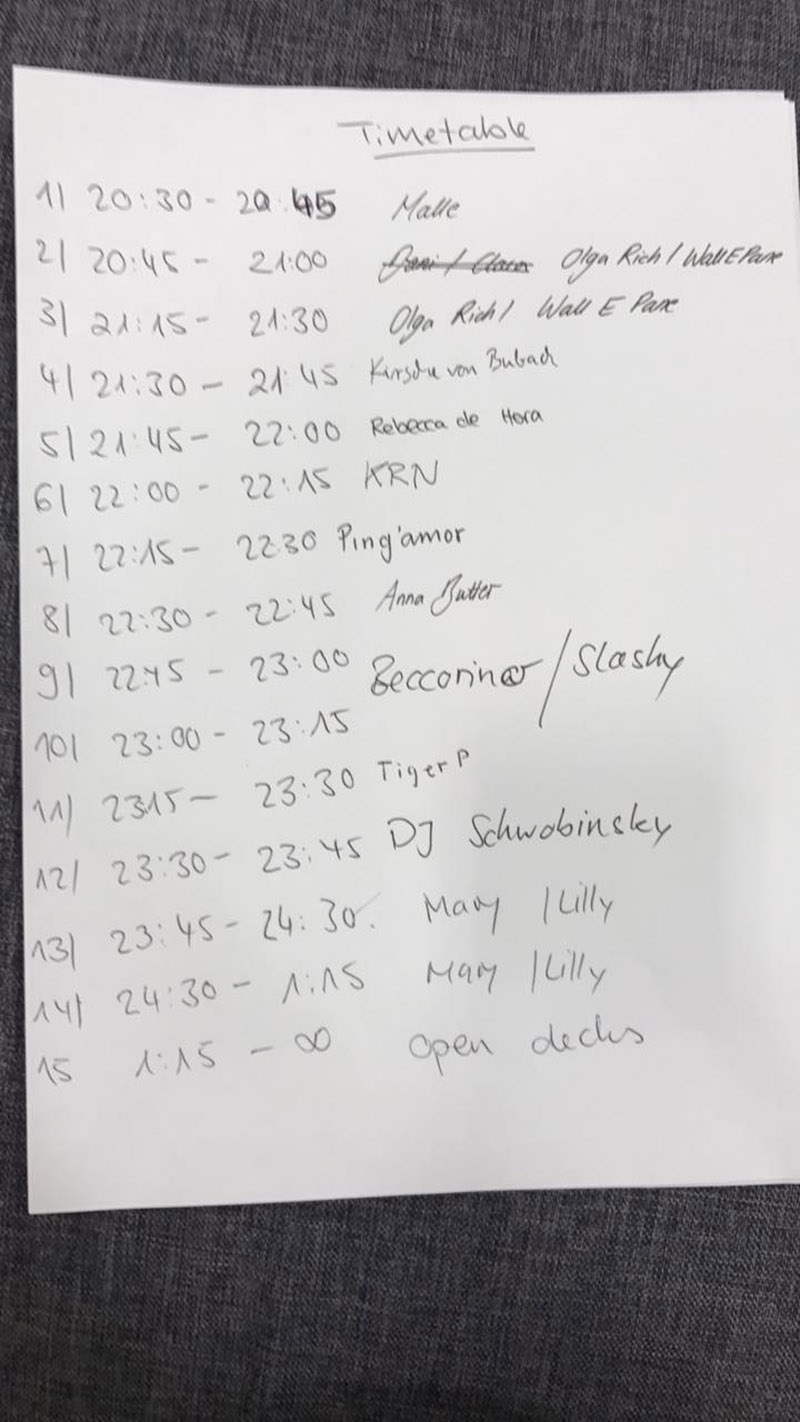 Timetable
1) 20:30 - 20:45 Malle
2) 20:45 - 21:00 Olga Rich / Wall E Pane
3) 21:15 - 21:30 Olga Rich / Wall E Pane
4) 21:30 - 21:45 von Bubach
5) 21:45 - 22:00 Rebecca de Hora
6) 22:00 - 22:15 KRN
7) 22:15 - 22:30 Ping'amor
8) 22:30 - 22:45 Anna Butter
9) 22:45 - 23:00 / Slashy
10) 23:00 - 23:15
11) 23:15 - 23:30 Tiger P
12) 23:30 - 23:45 DJ Schwobinsky
13) 23:45 - 24:30. Mary / Lilly
14) 24:30 - 1:15 Mary / Lilly
15 1:15 - ∞ open decks